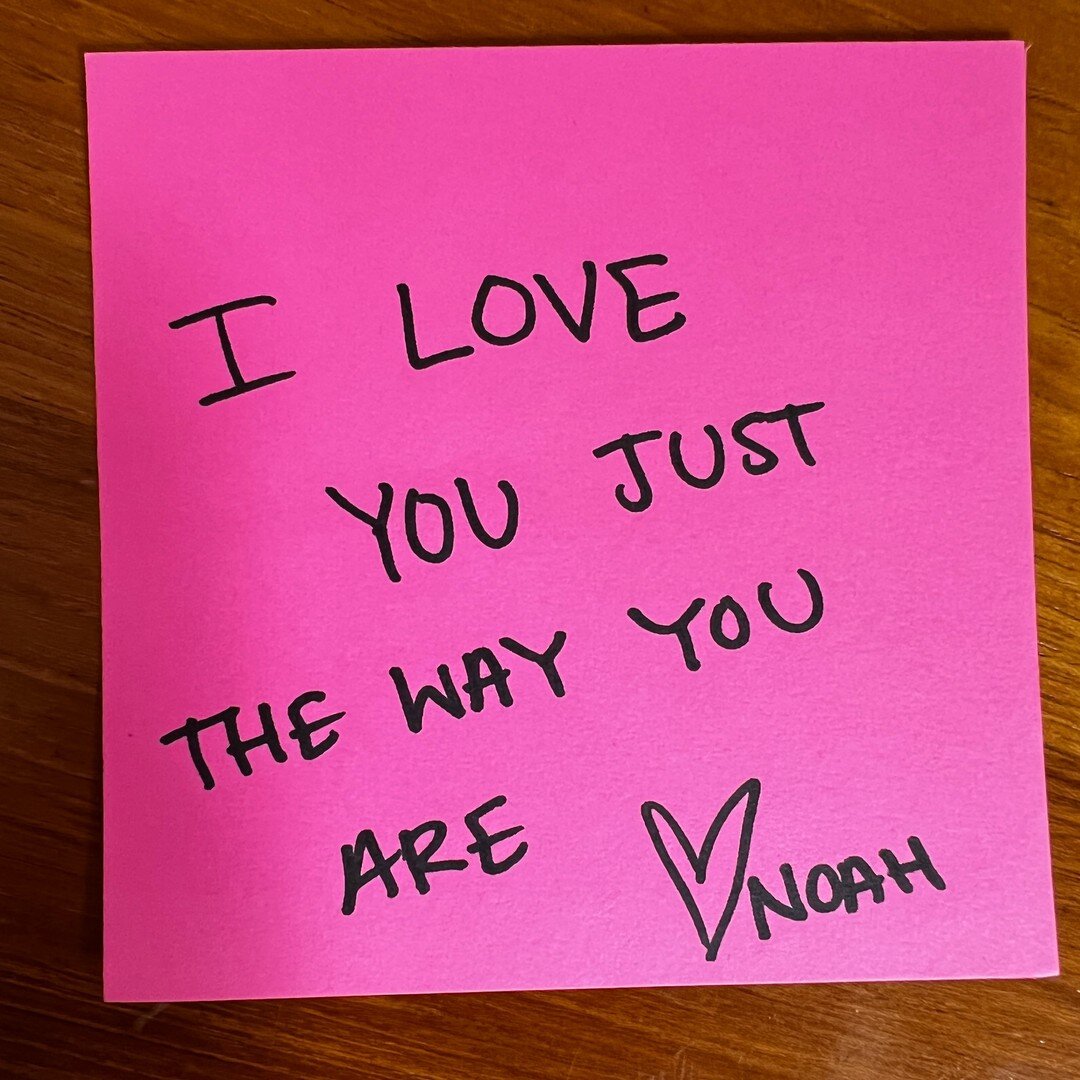 I LOVE
YOU JUST
THE WAY YOU
ARE ♡NOAH